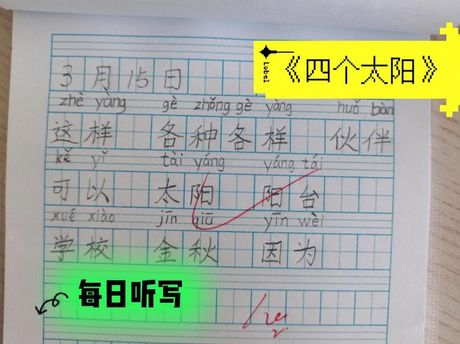 《四个太阳》
3月15日
zhè yàng gè zhǒng gè yàng huǒ bàn
这样 各种各样 伙伴
kě yǐ tài yáng yáng tái
可以 太阳 阳台
xué xiào jīn qiū yīn wèi
学校 金秋 因为
每日听写